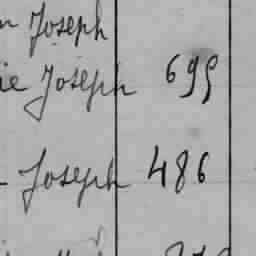 Joseph
Joseph 699
Joseph 486